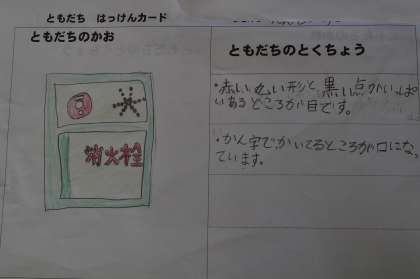 ともだち はっけんカード
ともだちのかお
消火栓
ともだちのとくちょう
・赤い丸い形と黒い点がいっぱ
いあるところが目です。
・かん字でかいてるところが口にな
ています。